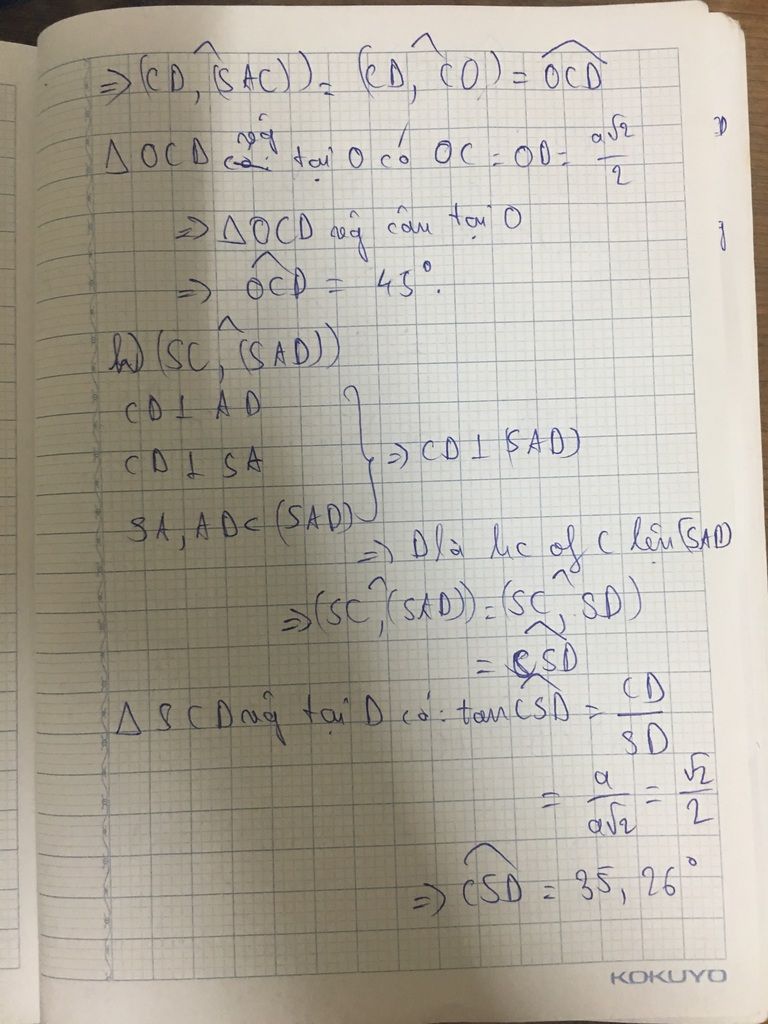 => (CD, (SAC)) = (CD, CO) = OCD
Δ OCD vg̃ tại O có OC = OD = a√2/2
=> Δ OCD vg̃ cân tại O
=> OCD = 45°.
h) (SC, (SAD))
CD ⊥ AD
CD ⊥ SA
SA, AD ⊂ (SAD)
=> CD ⊥ (SAD)
=> D là hc of C lên (SAD
=> (SC, (SAD)) = (SC, SD)
= CSD
Δ SCD vg̃ tại D có: tan CSD = CD/SD
= a/a√2 = √2/2
=> CSD = 35,26°
KOKUYO